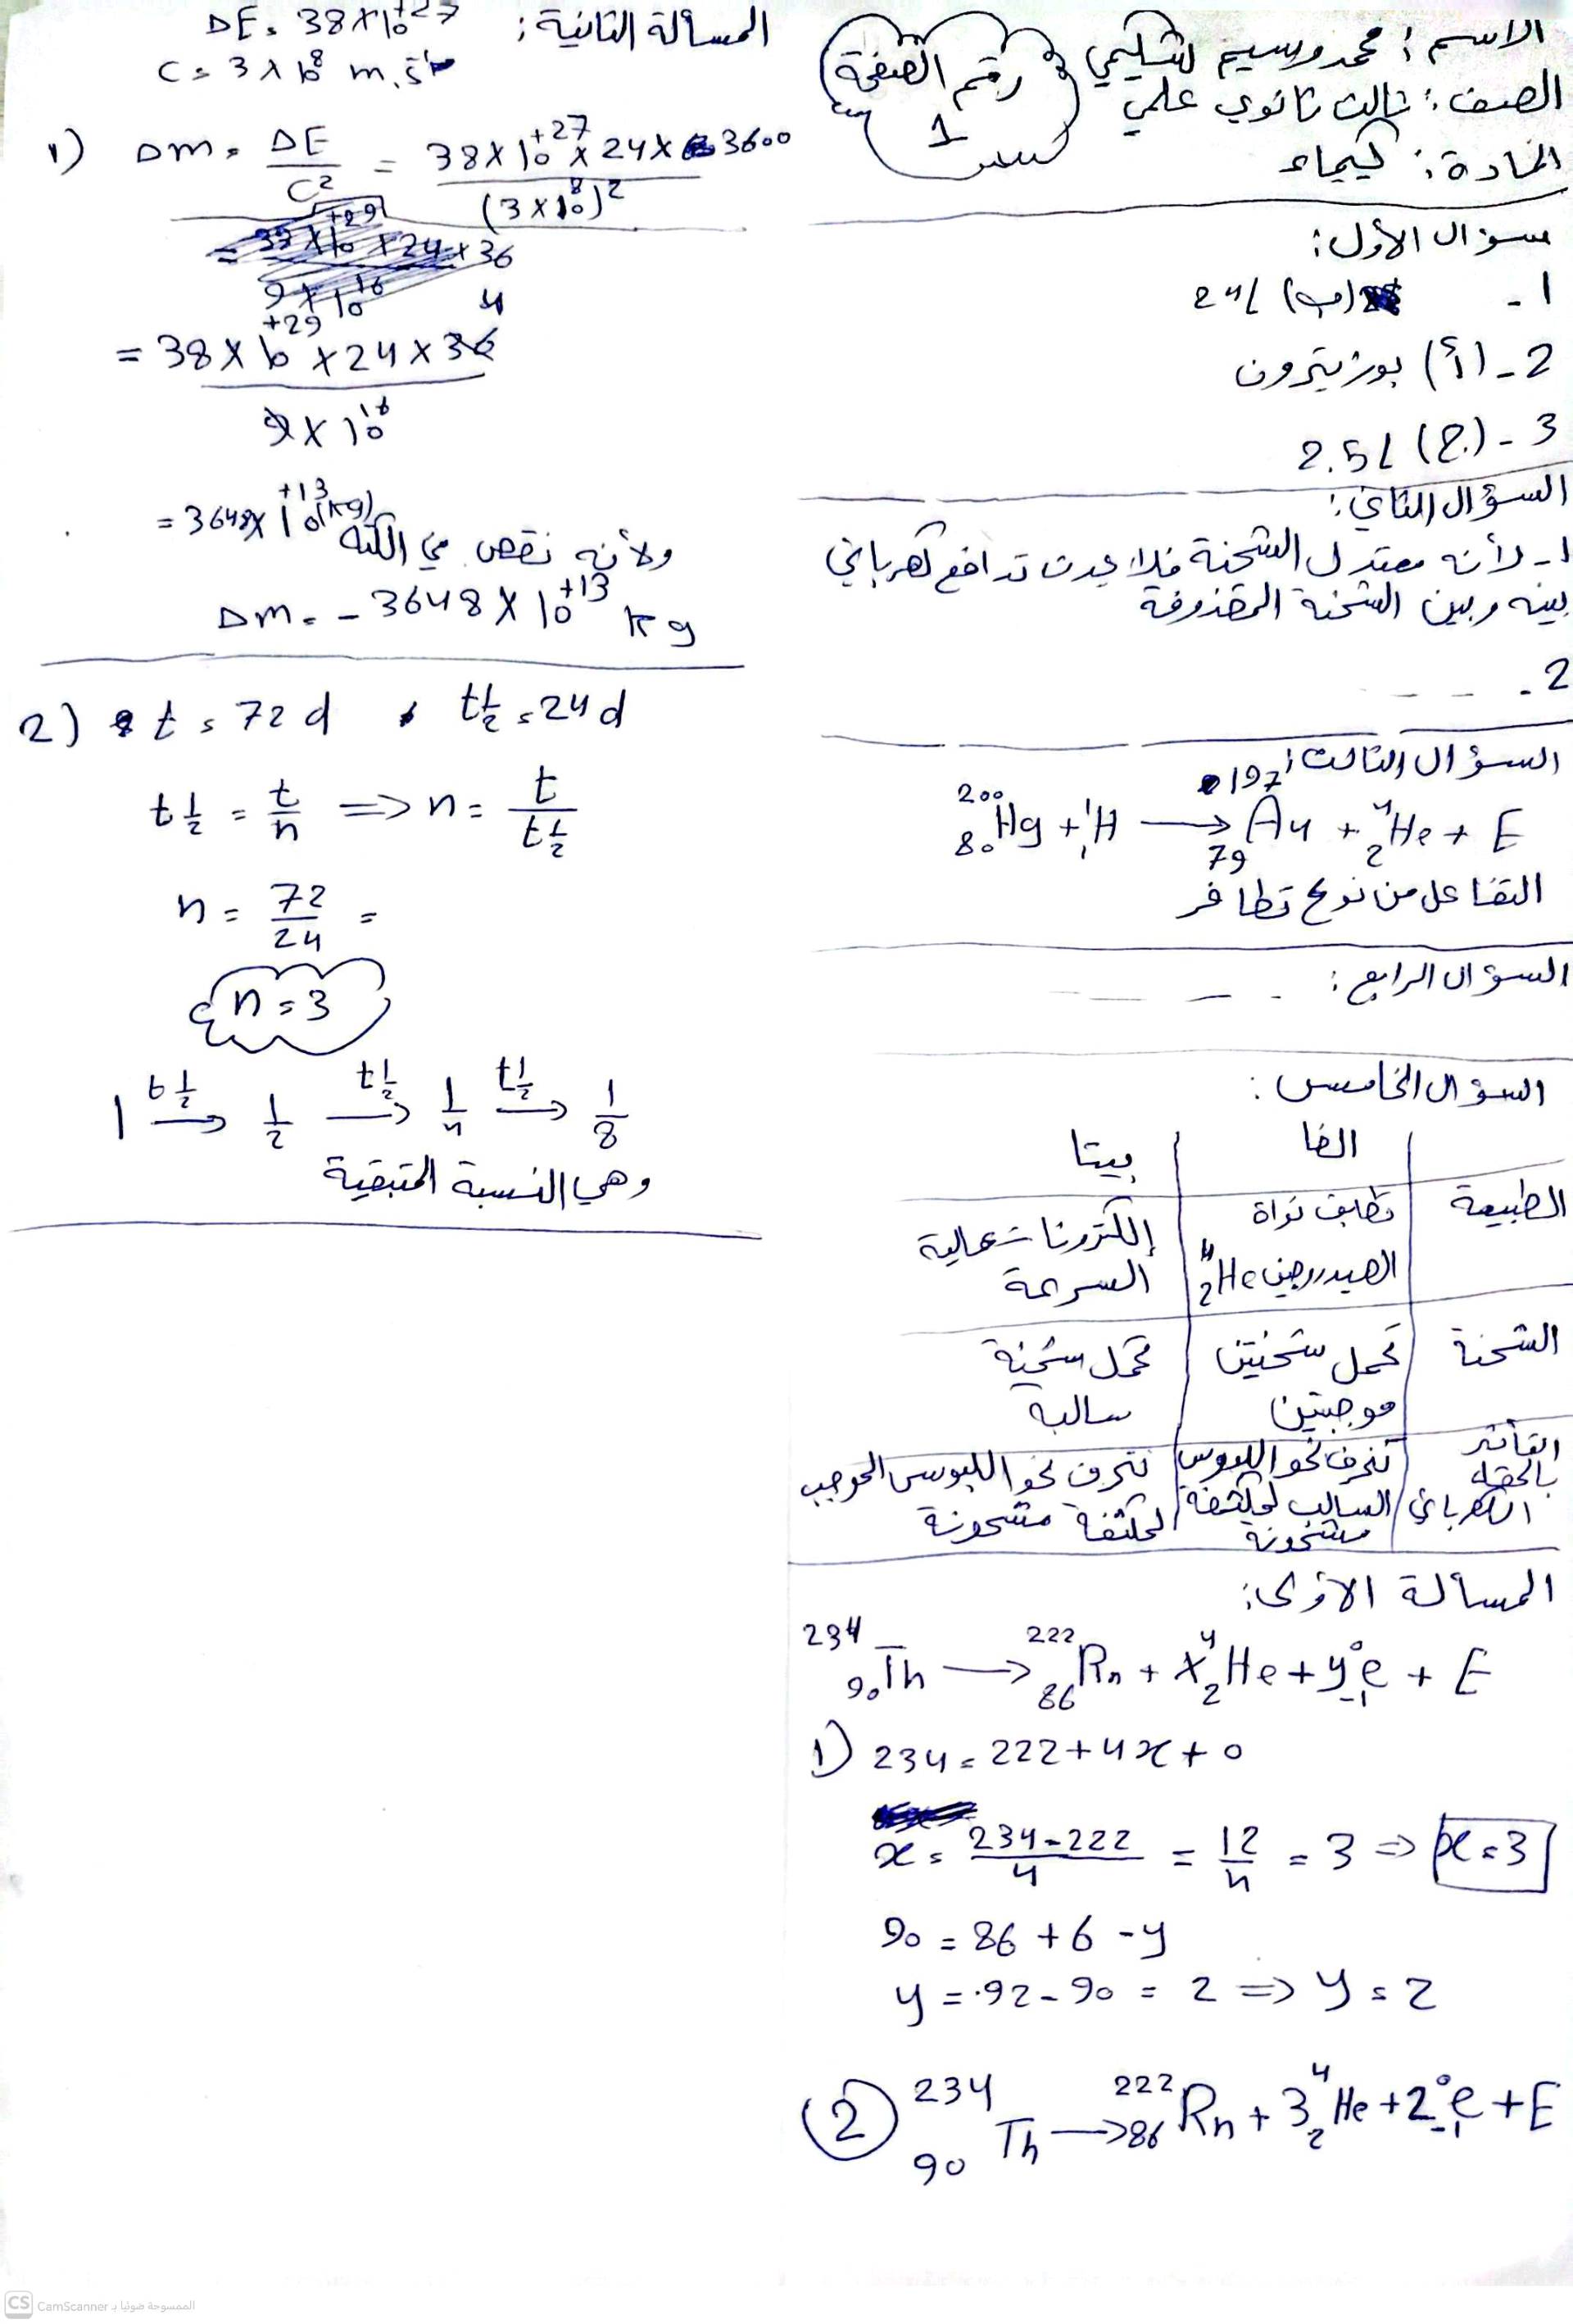 الاسم : محمد وسيم
الصف : ثالث ثانوي علمي
المادة : كيمياء
رقم الصفحة
1
سؤال الأول :
1 - (ب) 24L
2 - (أ) بوزيترون
3 - (ج) 2.5L
السؤال الثاني :
1 - لأنه معتدل الشحنة فلا يحدث تدافع كهربائي
بينه وبين الشحنة المقذوفة
2 - - - -
السؤال الثالث :
²⁰⁰₈₀Hg + ¹₁H → ¹⁹⁷₇₉Au + ⁴₂He + E
التفاعل من نوع تطافر
السؤال الرابع : - - - -
السؤال الخامس :
الفا | بيتا
الطبيعة | تطابق نواة الهيدروجين ⁴₂He | إلكترونات عالية السرعة
الشحنة | تحمل شحنتين موجبتين | تحمل شحنة سالبة
التأثر بالحقل الكهربائي | تنحرف نحو اللبوس السالب لمكثفة مشحونة | تنحرف نحو اللبوس الموجب لمكثفة مشحونة
المسألة الأولى :
²³⁴₉₀Th → ²²²₈₆Rn + x⁴₂He + y⁰₋₁e + E
1) 234 = 222 + 4x + 0
x = (234 - 222)/4 = 12/4 = 3 ⇒ x = 3
90 = 86 + 6 - y
y = 92 - 90 = 2 ⇒ y = 2
2 ²³⁴₉₀Th → ²²²₈₆Rn + 3⁴₂He + 2⁰₋₁e + E
المسألة الثانية :
ΔE = 38 × 10⁺²⁷
C = 3 × 10⁸ m.s⁻¹
1) Δm = ΔE/C² = (38 × 10⁺²⁷ × 24 × 3600)/(3 × 10⁸)²
= (38 × 10⁺²⁹ × 24 × 36)/(9 × 10¹⁶)
4
= 3648 × 10⁺¹³ (kg)
ولأنه نقص في الكتلة
Δm = - 3648 × 10⁺¹³ kg
2) t = 72 d , t½ = 24 d
t½ = t/n ⇒ n = t/t½
n = 72/24 =
n = 3
1 →(t½) 1/2 →(t½) 1/4 →(t½) 1/8
وهي النسبة المتبقية
CS CamScanner الممسوحة ضوئيا بـ